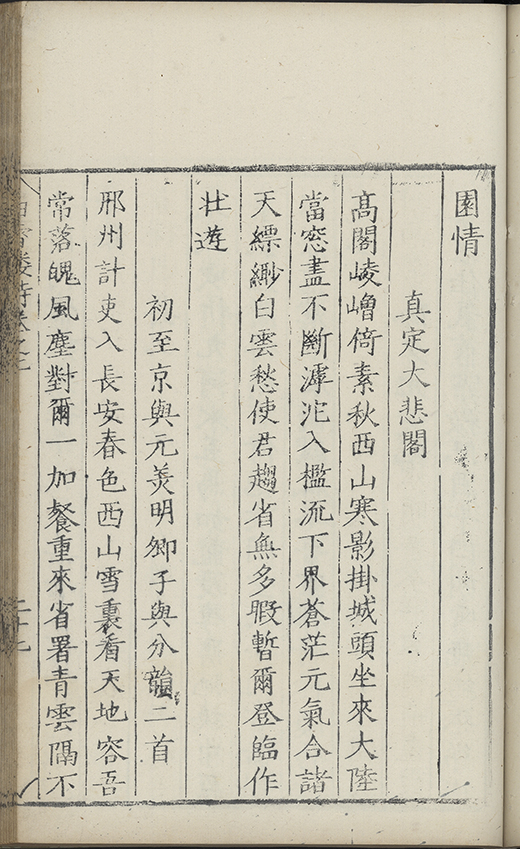 園情
真定大悲閣
高閣崚嶒倚素秋西山寒影掛城頭坐來大陸
當窓盡不斷滹沱入檻流下界蒼茫元氣合諸
天縹緲白雲愁使君趨省無多暇暫爾登臨作
壯遊
初至京與元羙明卿子與分韻二首
邢州計吏入長安春色西山雪裏看天地容吾
常落魄風塵對爾一加餐重來省署青雲隔不